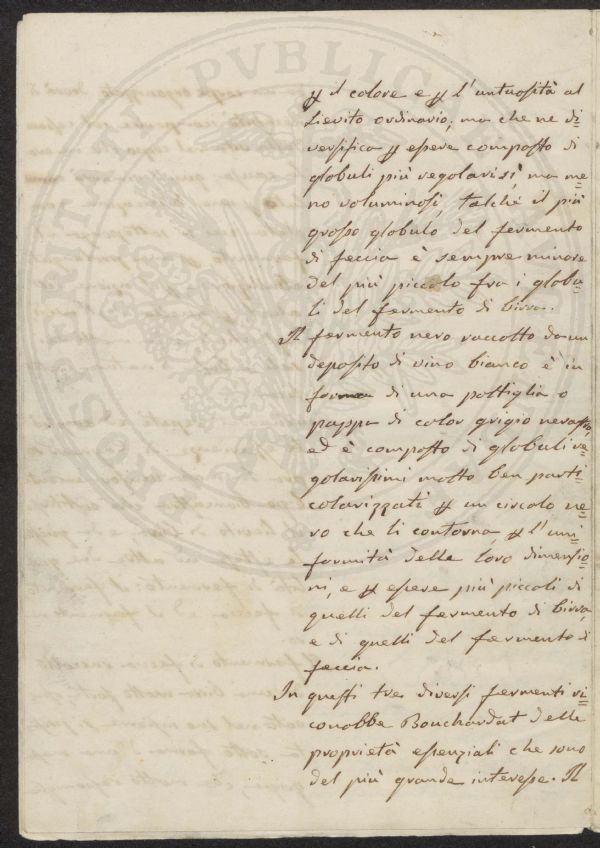 p il colore e p l'untuosità al
Lievito ordinario; ma che ne di=
versifica p essere composto di
globuli più regolarisi, ma me=
no voluminosi, talchè il più
grosso globulo del fermento
di feccia è sempre minore
del più piccolo fra i globu=
li del fermento di birra.
Il fermento nero raccolto da un
deposito di vino bianco è in
forma di una poltiglia o
pappa di color grigio nerastro,
ed è composto di globuli re=
golarissimi molto ben parti=
colarizzati p un circolo ne=
ro che li contorna, p l'uni=
formità delle loro dimensio=
ni, e p essere più piccoli di
quelli del fermento di birra,
e di quelli del fermento di
feccia.
In questi tre diversi fermenti ri=
conobbe Bouchardat delle
proprietà essenziali che sono
del più grande interesse. Il